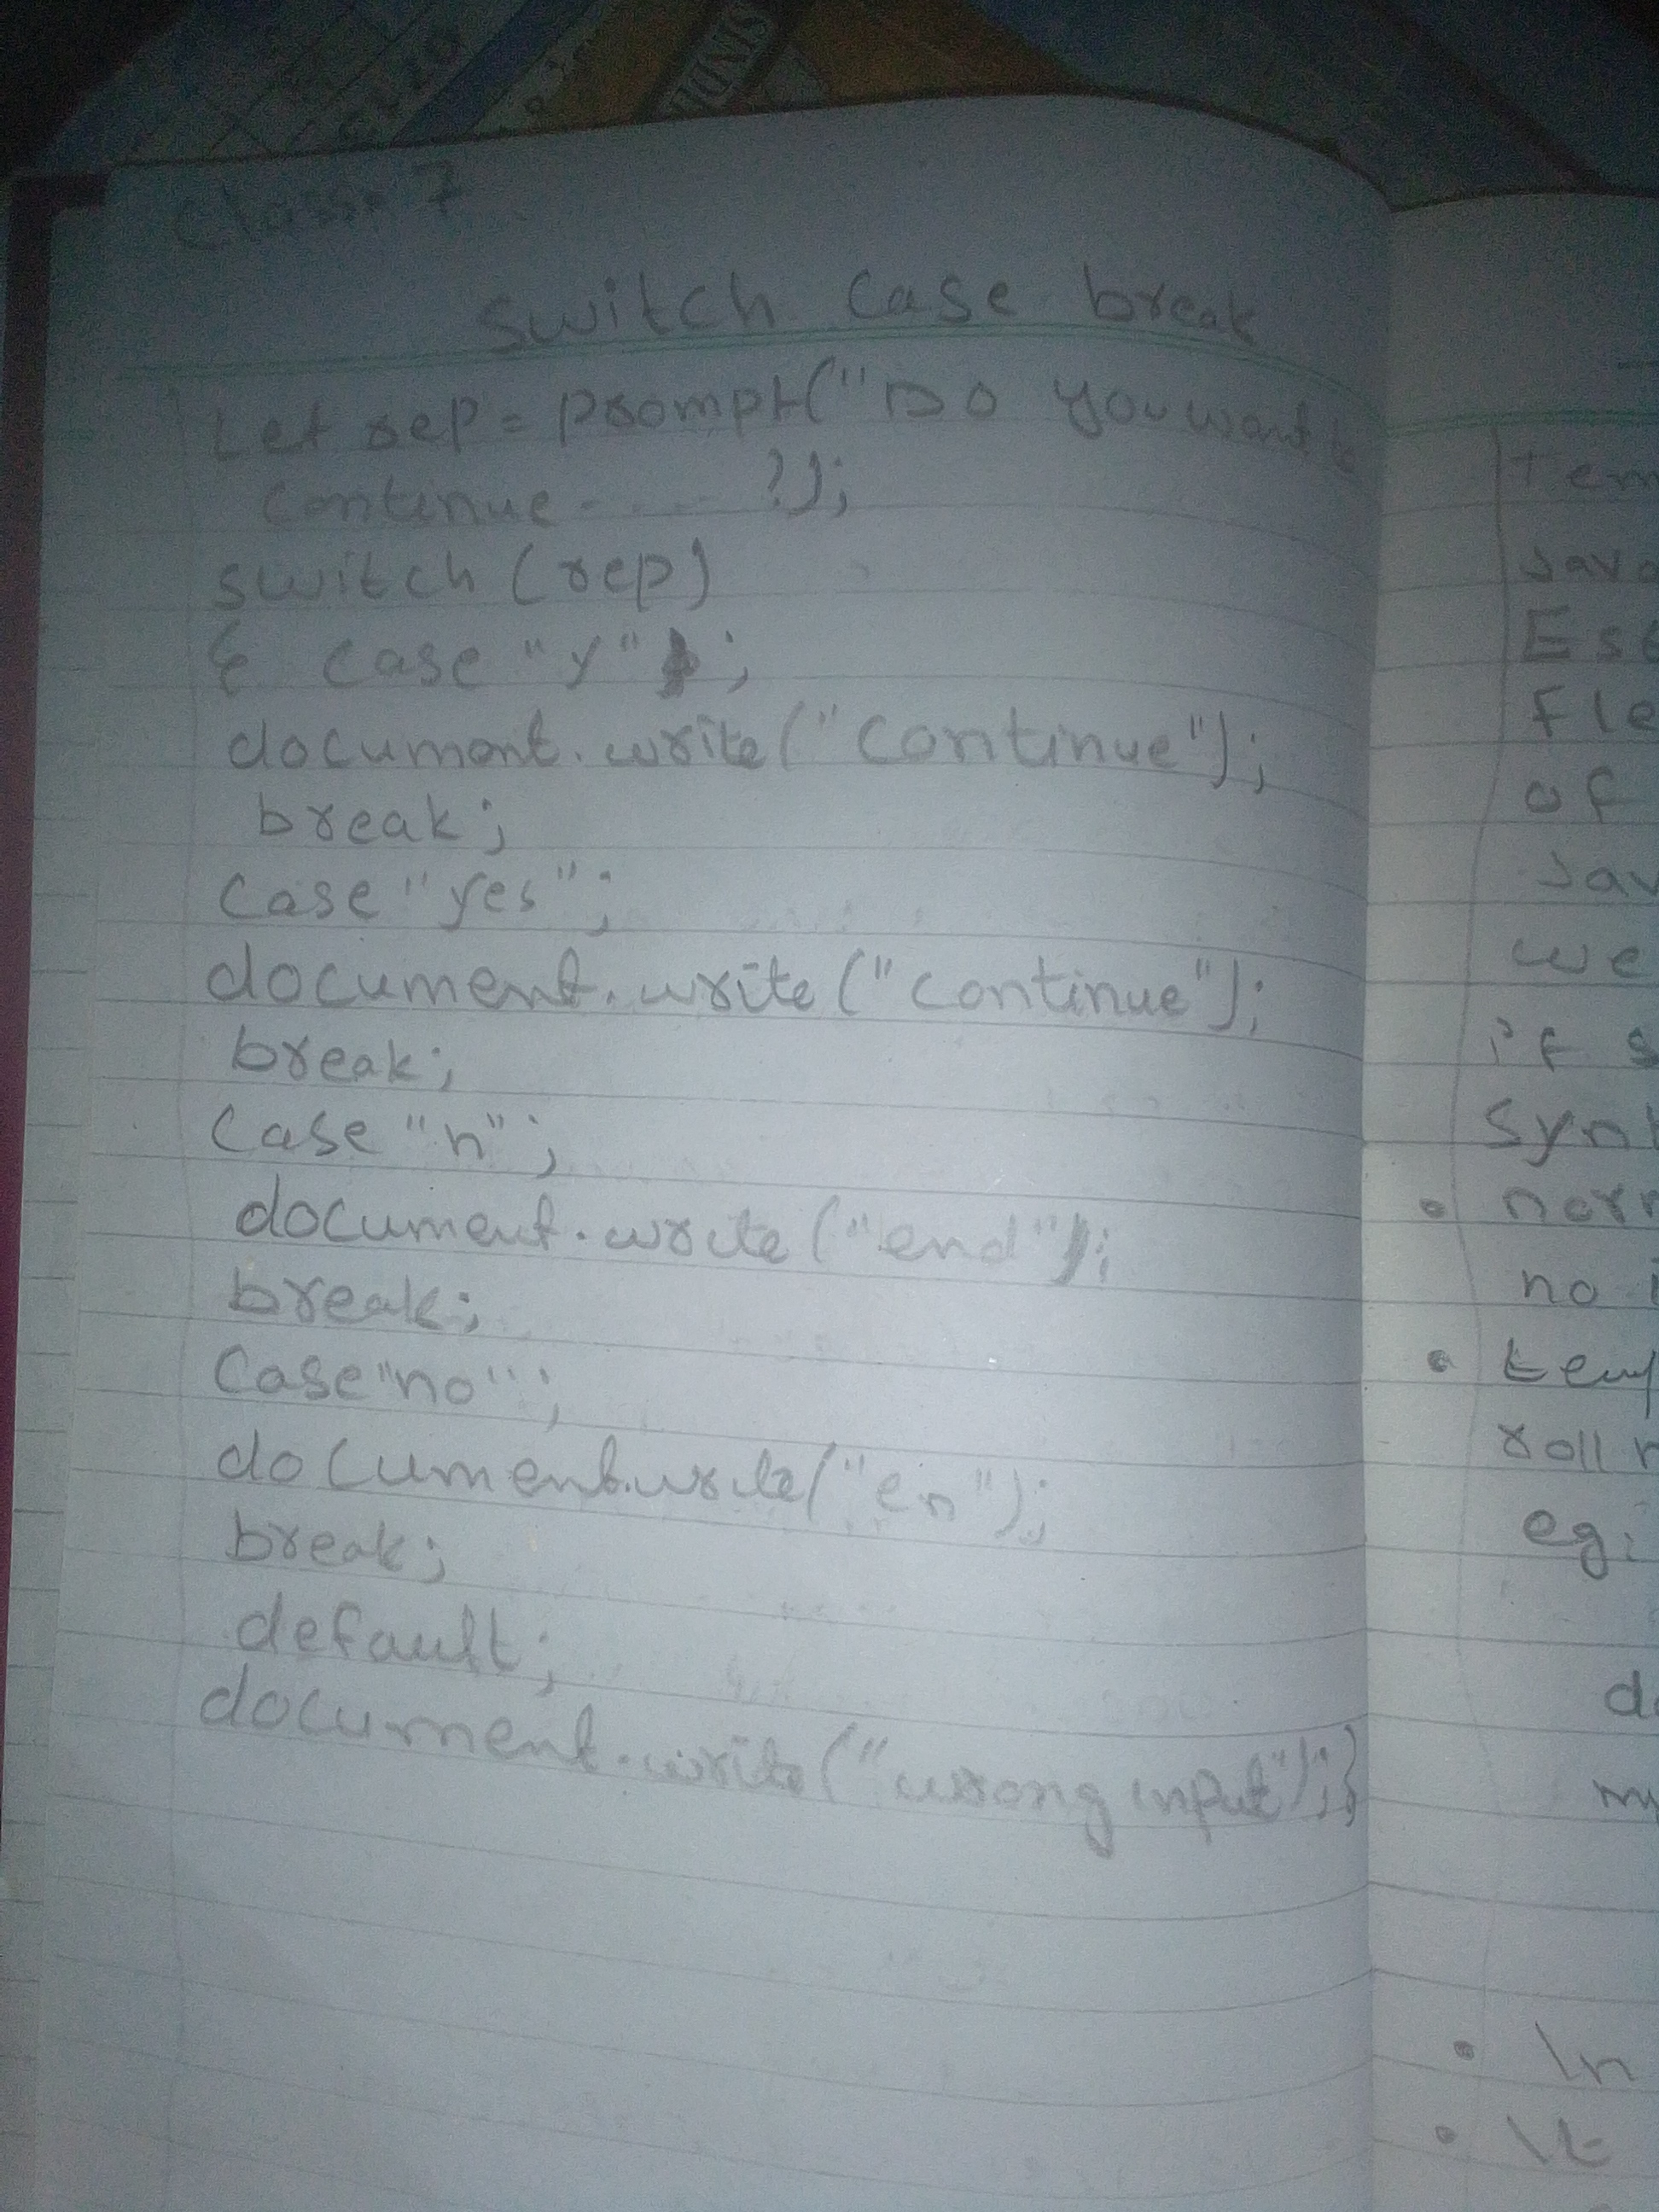 Class:- 7
switch case break
Let rep = prompt("Do you want to
continue - - - - ?);
switch (rep)
{ case "y" ;
document.write("continue");
break;
case "yes";
document.write("continue");
break;
case "n";
document.write("end");
break;
case "no";
document.write("en");
break;
default;
document.write("wrong input");}
Tem
Java
Es6
Fle
of
Jav
we
if s
Synt
• norm
no i
• temp
roll n
eg:
do
my
• \n
• \t